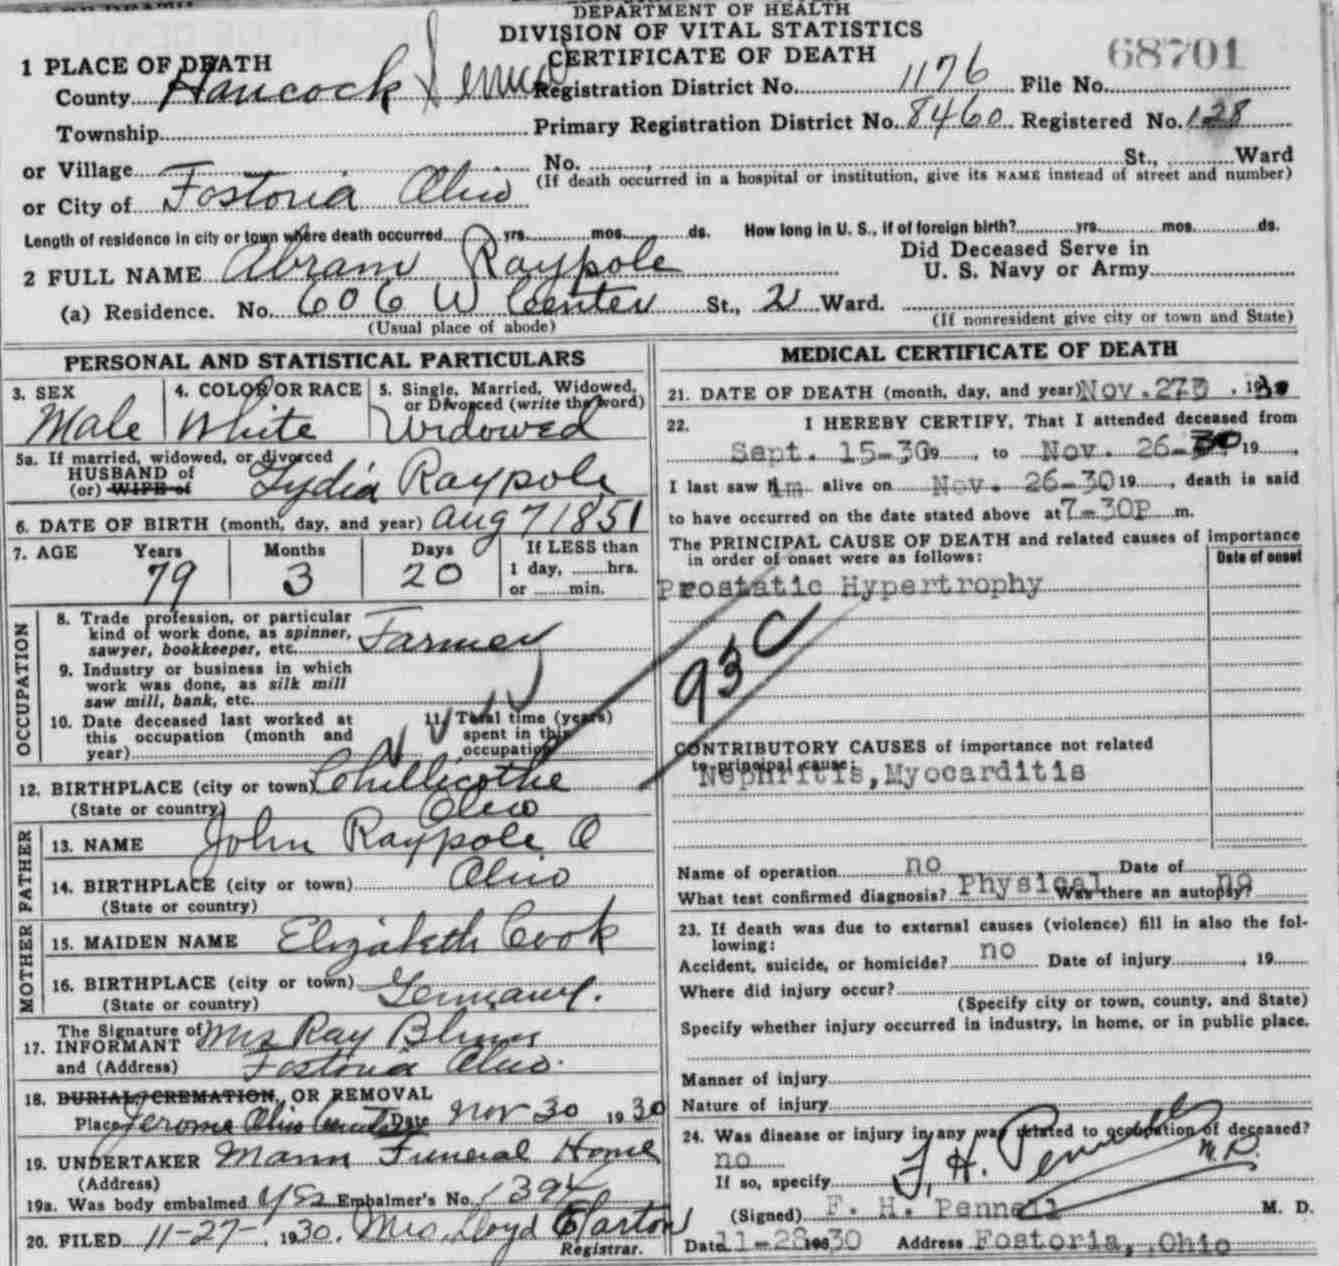 DEPARTMENT OF HEALTH
DIVISION OF VITAL STATISTICS
CERTIFICATE OF DEATH
68701
1 PLACE OF DEATH
County Hancock Seneca Registration District No. 1176 File No.
Township Primary Registration District No. 8460 Registered No. 128
or Village No. , St., Ward
(If death occurred in a hospital or institution, give its NAME instead of street and number)
or City of Fostoria Ohio
Length of residence in city or town where death occurred yrs. mos. ds. How long in U. S., if of foreign birth? yrs. mos. ds.
2 FULL NAME Abram Raypole Did Deceased Serve in U. S. Navy or Army
(a) Residence. No. 606 W Center St., 2 Ward.
(Usual place of abode) (If nonresident give city or town and State)
PERSONAL AND STATISTICAL PARTICULARS
3. SEX Male
4. COLOR OR RACE White
5. Single, Married, Widowed, or Divorced (write the word) Widowed
5a. If married, widowed, or divorced
HUSBAND of
(or) WIFE of Lydia Raypole
6. DATE OF BIRTH (month, day, and year) Aug 7 1851
7. AGE Years 79 Months 3 Days 20 If LESS than 1 day, hrs. or min.
OCCUPATION
8. Trade profession, or particular kind of work done, as spinner, sawyer, bookkeeper, etc. Farmer
9. Industry or business in which work was done, as silk mill saw mill, bank, etc.
10. Date deceased last worked at this occupation (month and year)
11. Total time (years) spent in this occupation
12. BIRTHPLACE (city or town) Chillicothe
(State or country) Ohio
FATHER
13. NAME John Raypole
14. BIRTHPLACE (city or town) Ohio
(State or country)
MOTHER
15. MAIDEN NAME Elizabeth Cook
16. BIRTHPLACE (city or town) Germany.
(State or country)
17. The Signature of INFORMANT Mrs Ray Blum
and (Address) Fostoria Ohio.
18. BURIAL, CREMATION, OR REMOVAL
Place Jerome Ohio Date Nov 30 1930
19. UNDERTAKER Mann Funeral Home
(Address)
19a. Was body embalmed yes Embalmer's No. 1394
20. FILED 11-27-, 1930. Mrs. Lloyd
Registrar.
MEDICAL CERTIFICATE OF DEATH
21. DATE OF DEATH (month, day, and year) Nov. 27 , 1930
22. I HEREBY CERTIFY, That I attended deceased from
Sept. 15-30 19 , to Nov. 26-30 19 ,
I last saw him alive on Nov. 26-30 19 , death is said
to have occurred on the date stated above at 7-30P m.
The PRINCIPAL CAUSE OF DEATH and related causes of importance
in order of onset were as follows: Date of onset
Prostatic Hypertrophy
93c
CONTRIBUTORY CAUSES of importance not related
to principal cause:
Nephritis, Myocarditis
Name of operation no Date of
What test confirmed diagnosis? Physical Was there an autopsy? no
23. If death was due to external causes (violence) fill in also the following:
Accident, suicide, or homicide? no Date of injury , 19
Where did injury occur?
(Specify city or town, county, and State)
Specify whether injury occurred in industry, in home, or in public place.
Manner of injury
Nature of injury
24. Was disease or injury in any way related to occupation of deceased?
no
If so, specify F. H. Pennell M.D.
(Signed) F. H. Pennell M. D.
Date 11-28-1930 Address Fostoria, Ohio